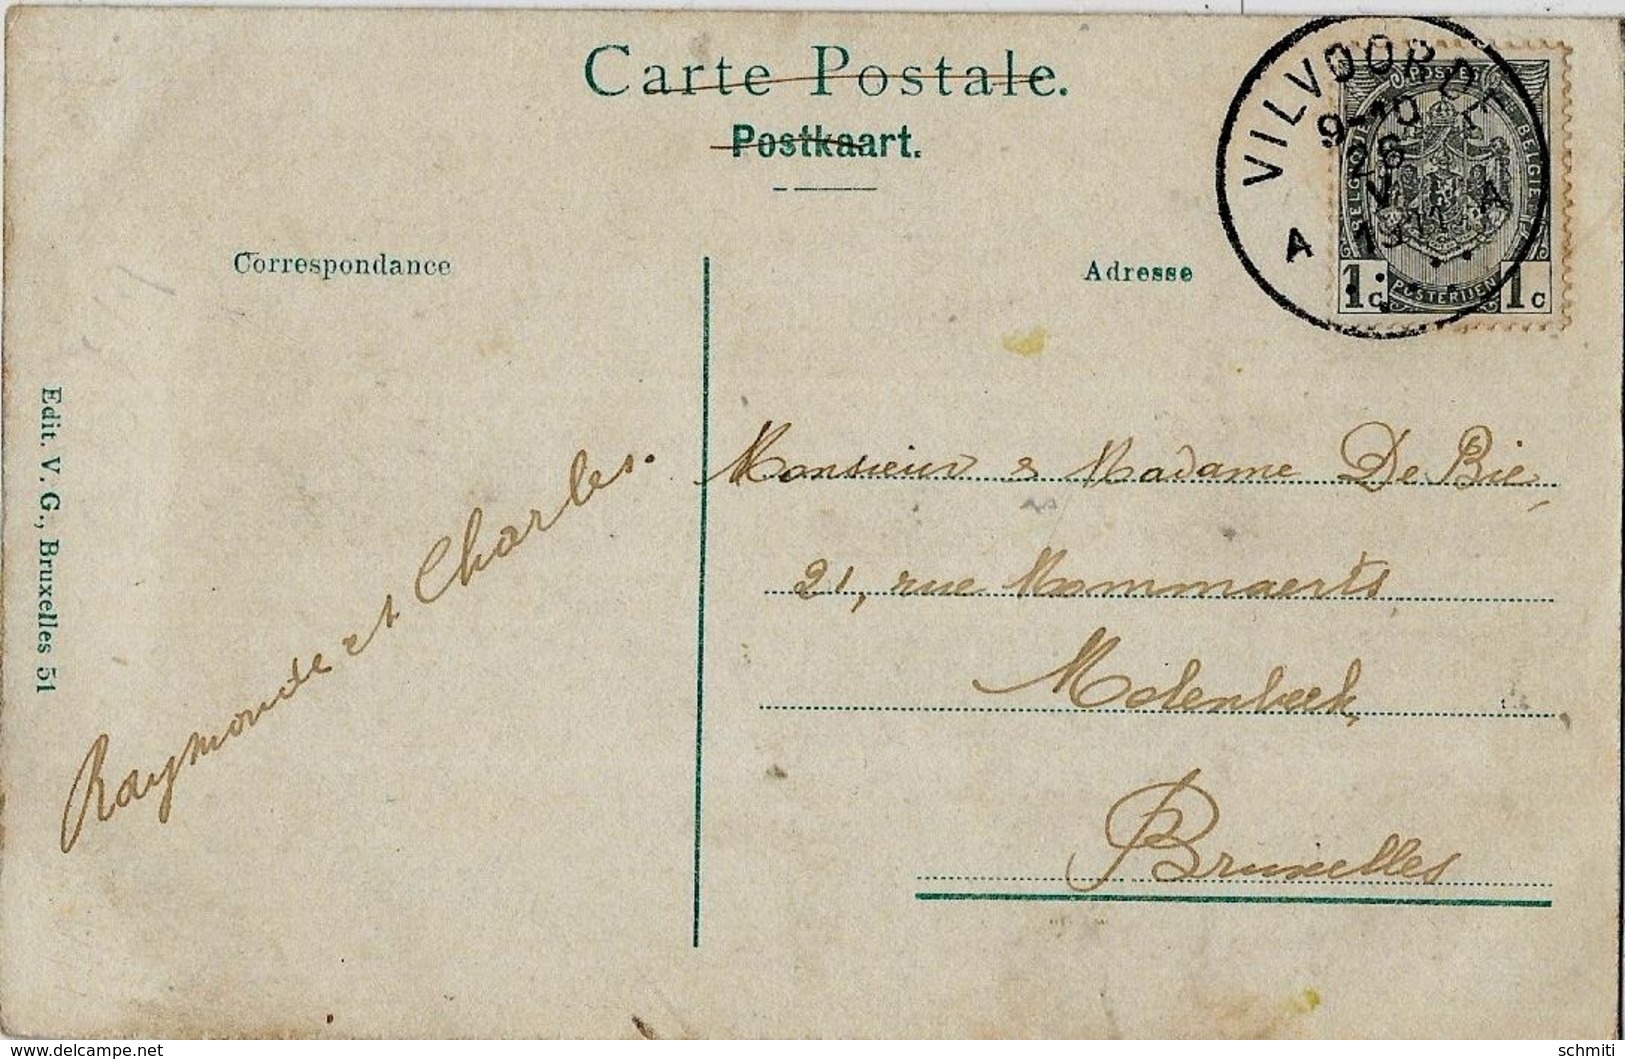 Carte Postale.
Postkaart.
Correspondance
Adresse
VILVOORDE
9-10
26
V
1911
A A
POSTES
BELGIQUE
BELGIË
POSTERIJEN
1c 1c
Edit. V. G., Bruxelles 51
Raymonde et Charles.
Monsieur & Madame De Bie,
21, rue Mommaerts
Molenbeek,
Bruxelles
www.delcampe.net
schmiti